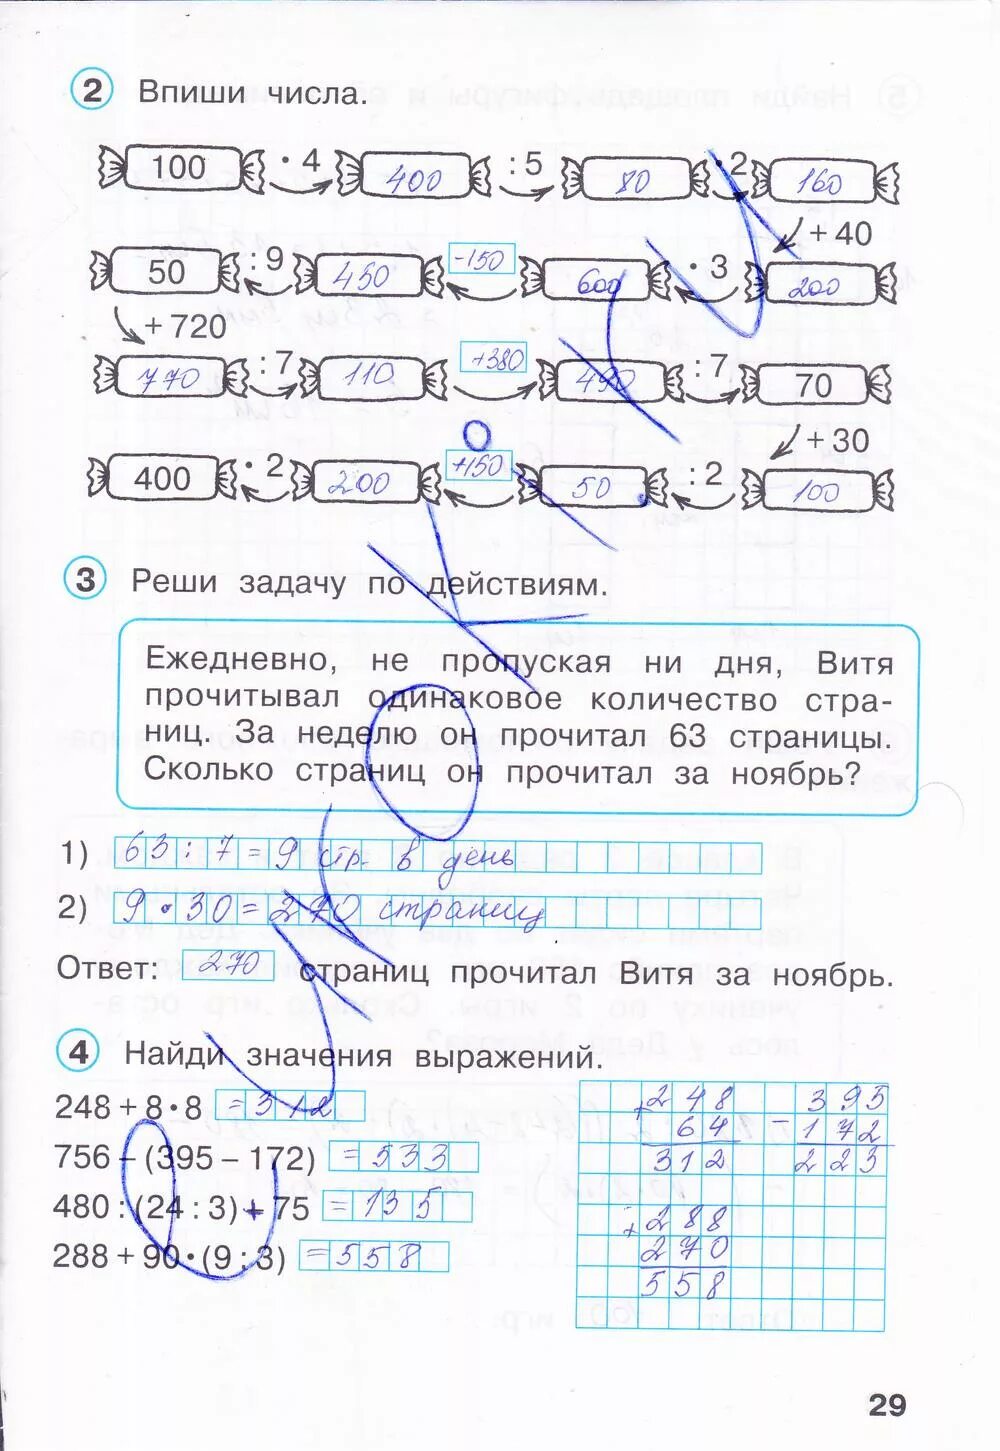 2 Впиши числа.
100 · 4 400 : 5 80 · 2 160
+ 40
50 : 9 450 -150 600 · 3 200
+ 720
770 : 7 110 +380 490 : 7 70
+ 30
400 · 2 200 +150 50 : 2 100
3 Реши задачу по действиям.
Ежедневно, не пропуская ни дня, Витя
прочитывал одинаковое количество стра-
ниц. За неделю он прочитал 63 страницы.
Сколько страниц он прочитал за ноябрь?
1) 63 : 7 = 9 стр. в день
2) 9 · 30 = 270 страниц
Ответ: 270 страниц прочитал Витя за ноябрь.
4 Найди значения выражений.
248 + 8 · 8 = 312
756 – (395 – 172) = 533
480 : (24 : 3) + 75 = 135
288 + 90 · (9 : 3) = 558
+248 395
64 -172
312 223
+288
270
558
29